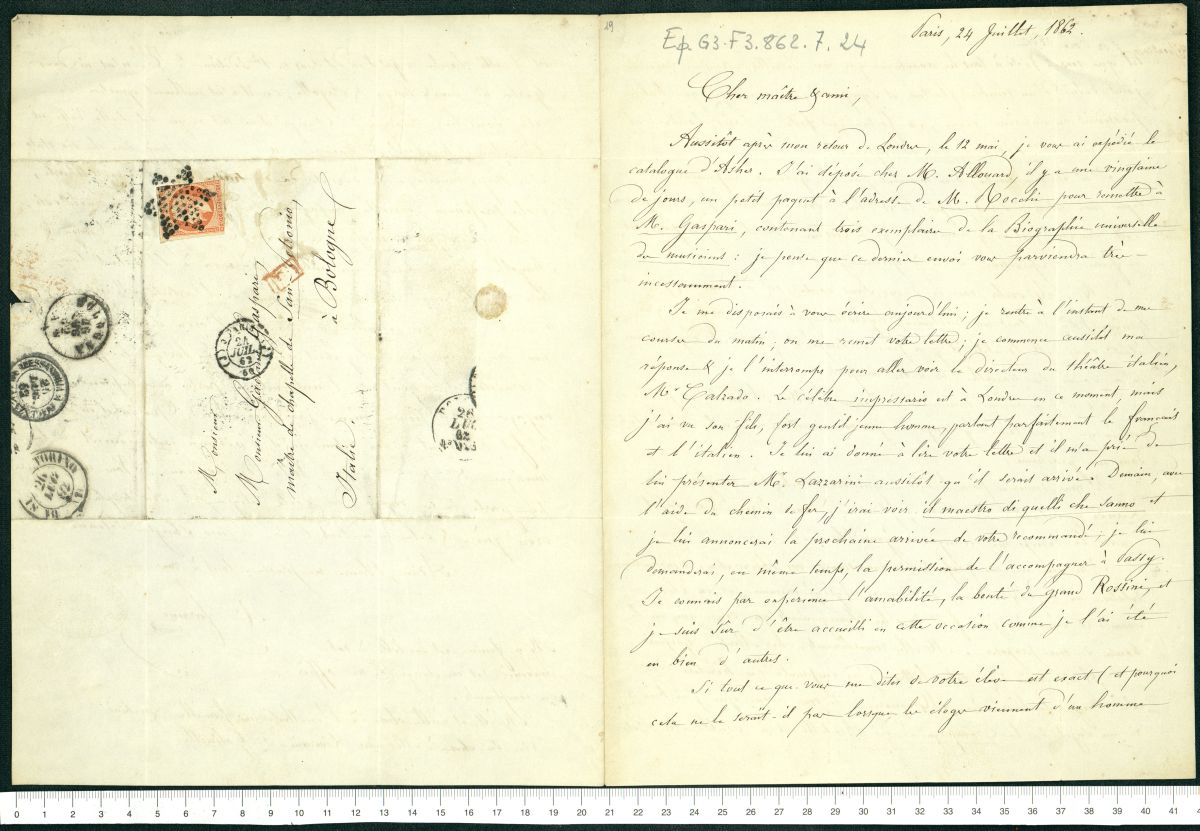 29
Ep. G3-F3.862.7.24
Paris, 24 Juillet, 1862.
Cher maître & ami,
Aussitôt après mon retour de Londres, le 12 mai, je vous ai expédié le
catalogue d'Asher. J'ai déposé chez M. Allouard, il y a une vingtaine
de jours, un petit paquet à l'adresse de M. Rocchi pour remettre à
M. Gaspari, contenant trois exemplaires de la Biographie universelle
des musiciens : je pense que ce dernier envoi vous parviendra très-
incessamment.
Je me disposais à vous écrire aujourd'hui ; je rentre à l'instant de mes
courses du matin ; on me remet votre lettre ; je commence aussitôt ma
réponse & je l'interromps pour aller voir le directeur du théâtre italien,
Mr Calzado. Le célèbre impressario est à Londres en ce moment, mais
j'ai vu son fils, fort gentil jeune homme, parlant parfaitement le français
et l'italien. Je lui ai donné à lire votre lettre et il m'a prié de
lui présenter Mr. Lazzarini aussitôt qu'il serait arrivé. Demain, avec
l'aide du chemin de fer, j'irai voir il maestro di quelli che sanno et
je lui annoncerai la prochaine arrivée de votre recommandé ; je lui
demanderai, en même temps, la permission de l'accompagner à Passy.
Je connais par expérience l'amabilité, la bonté du grand Rossini, et
je suis sûr d'être accueilli en cette occasion comme je l'ai été
en bien d'autres.
Si tout ce que vous me dites de votre élève est exact (et pourquoi
cela ne le serait-il pas lorsque les éloges viennent d'un homme
Monsieur
Monsieur Gaetano Gaspari,
maître de chapelle de San-Petronio,
à Bologne
Italie.
PARIS
24
JUIL
62
60
BOLOGNA
TORINO
26
LUG
62
26
LUG
62
0 1 2 3 4 5 6 7 8 9 10 11 12 13 14 15 16 17 18 19 20 21 22 23 24 25 26 27 28 29 30 31 32 33 34 35 36 37 38 39 40 41